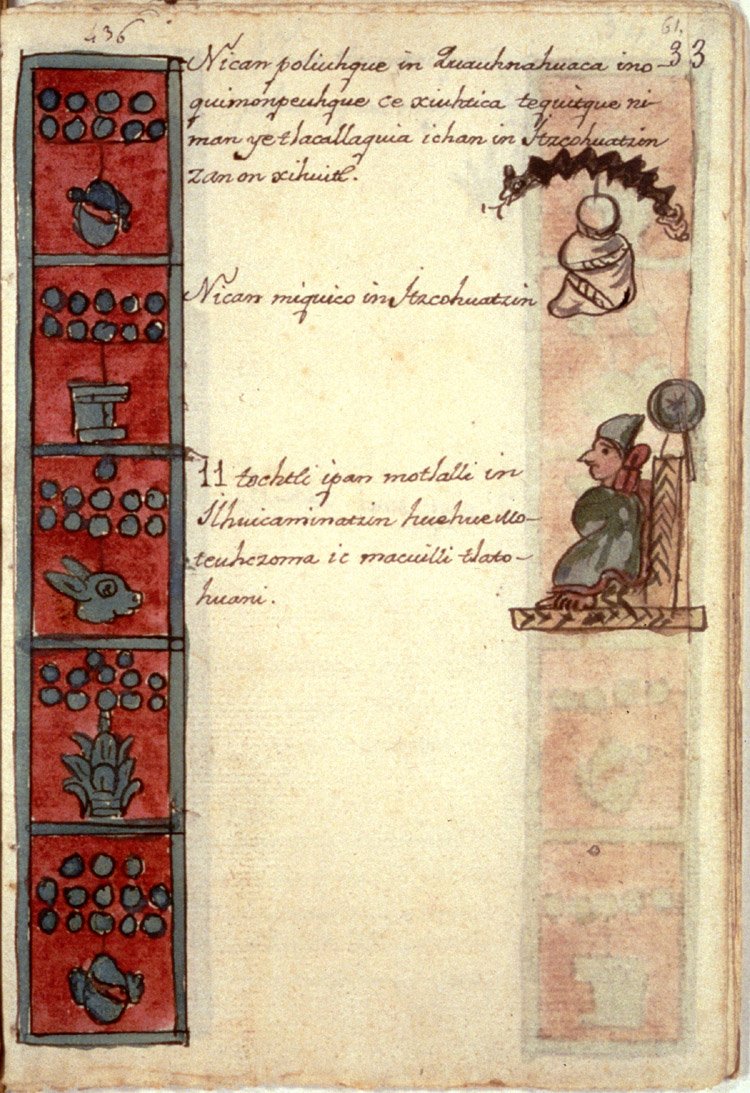 436
61.
33
Nican poliuhque in Quauhnahuaca ino-
quimonpeuhque ce xiuhtica tequitque ni-
man ye tlacallaquia ichan in Itzcohuatzin
zan on xihuitl.
Nican miquico in Itzcohuatzin
11 tochtli ipan motlalli in
Ilhuicaminatzin huehue Mo-
teuhczoma ic macuilli tlato-
huani.